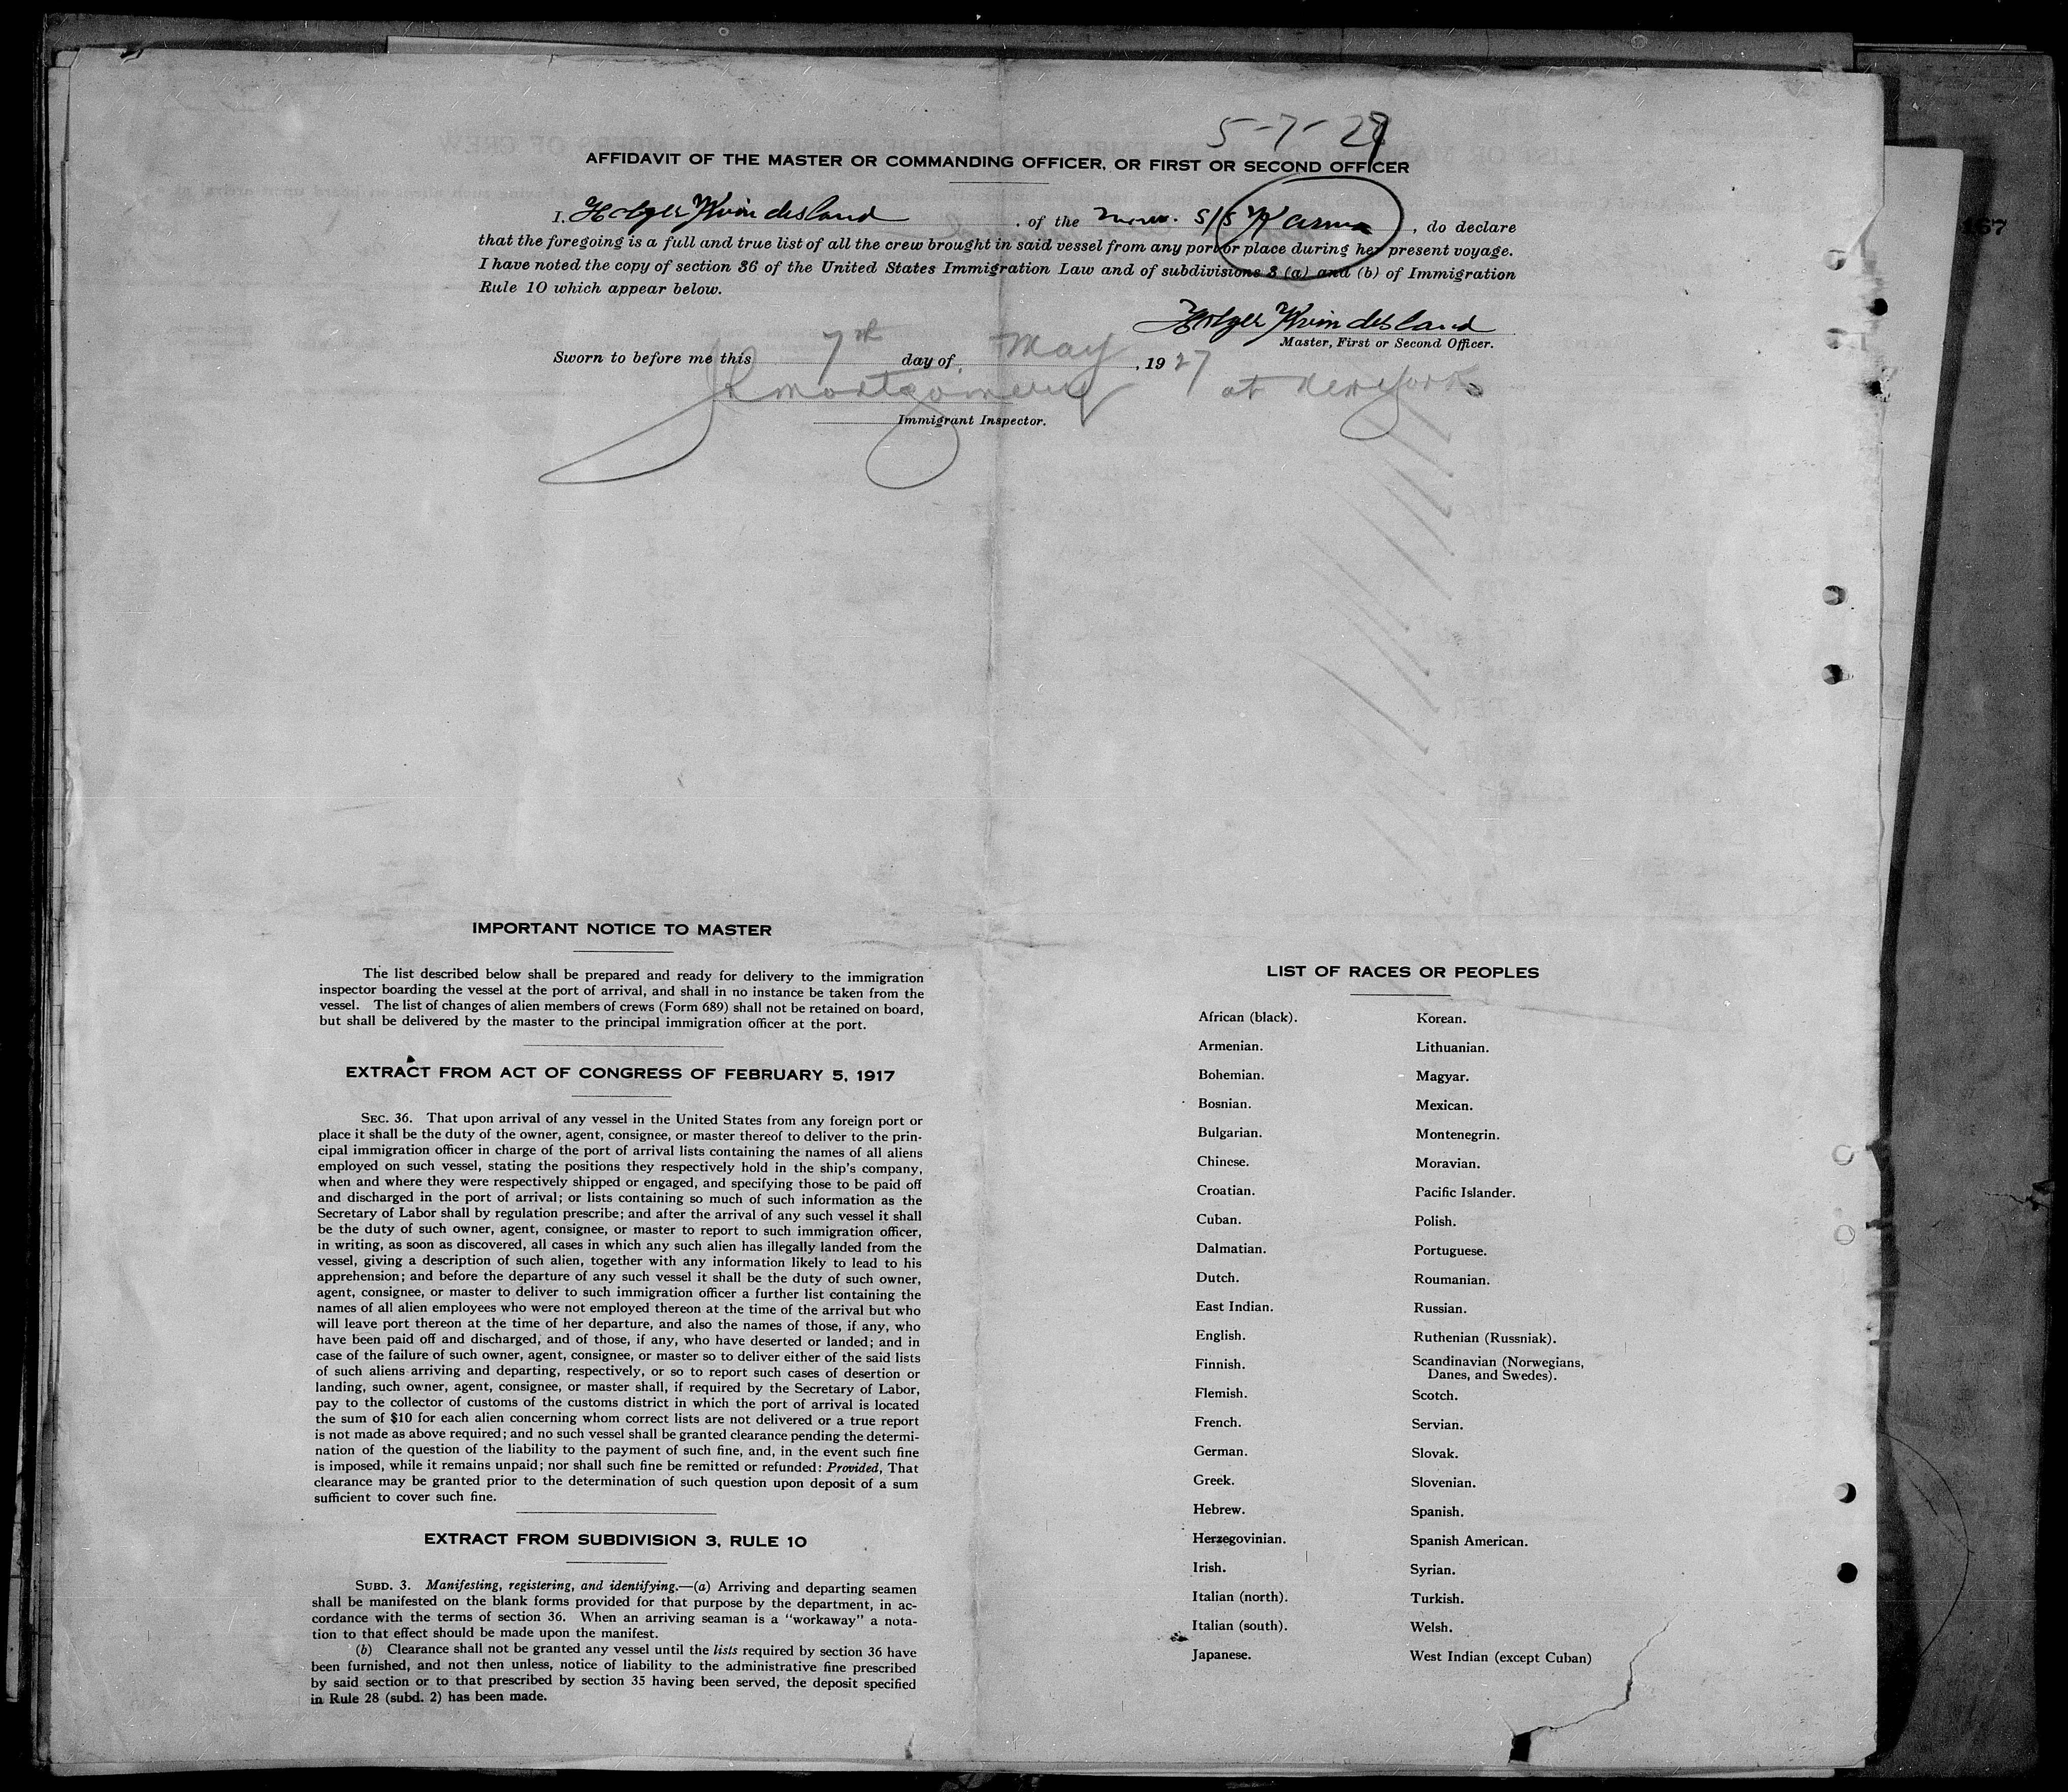 5-7-27
AFFIDAVIT OF THE MASTER OR COMMANDING OFFICER, OR FIRST OR SECOND OFFICER
I, Holger Kvindesland, of the Norw. S/S Karma, do declare
that the foregoing is a full and true list of all the crew brought in said vessel from any port or place during her present voyage.
I have noted the copy of section 36 of the United States Immigration Law and of subdivisions 3 (a) and (b) of Immigration
Rule 10 which appear below.
Holger Kvindesland
Master, First or Second Officer.
Sworn to before me this 7th day of May, 1927 at New York
Montgomery
Immigrant Inspector.
167
IMPORTANT NOTICE TO MASTER
The list described below shall be prepared and ready for delivery to the immigration
inspector boarding the vessel at the port of arrival, and shall in no instance be taken from the
vessel. The list of changes of alien members of crews (Form 689) shall not be retained on board,
but shall be delivered by the master to the principal immigration officer at the port.
EXTRACT FROM ACT OF CONGRESS OF FEBRUARY 5, 1917
SEC. 36. That upon arrival of any vessel in the United States from any foreign port or
place it shall be the duty of the owner, agent, consignee, or master thereof to deliver to the prin-
cipal immigration officer in charge of the port of arrival lists containing the names of all aliens
employed on such vessel, stating the positions they respectively hold in the ship's company,
when and where they were respectively shipped or engaged, and specifying those to be paid off
and discharged in the port of arrival; or lists containing so much of such information as the
Secretary of Labor shall by regulation prescribe; and after the arrival of any such vessel it shall
be the duty of such owner, agent, consignee, or master to report to such immigration officer,
in writing, as soon as discovered, all cases in which any such alien has illegally landed from the
vessel, giving a description of such alien, together with any information likely to lead to his
apprehension; and before the departure of any such vessel it shall be the duty of such owner,
agent, consignee, or master to deliver to such immigration officer a further list containing the
names of all alien employees who were not employed thereon at the time of the arrival but who
will leave port thereon at the time of her departure, and also the names of those, if any, who
have been paid off and discharged, and of those, if any, who have deserted or landed; and in
case of the failure of such owner, agent, consignee, or master so to deliver either of the said lists
of such aliens arriving and departing, respectively, or so to report such cases of desertion or
landing, such owner, agent, consignee, or master shall, if required by the Secretary of Labor,
pay to the collector of customs of the customs district in which the port of arrival is located
the sum of $10 for each alien concerning whom correct lists are not delivered or a true report
is not made as above required; and no such vessel shall be granted clearance pending the determi-
nation of the question of the liability to the payment of such fine, and, in the event such fine
is imposed, while it remains unpaid; nor shall such fine be remitted or refunded: Provided, That
clearance may be granted prior to the determination of such question upon deposit of a sum
sufficient to cover such fine.
EXTRACT FROM SUBDIVISION 3, RULE 10
SUBD. 3. Manifesting, registering, and identifying.—(a) Arriving and departing seamen
shall be manifested on the blank forms provided for that purpose by the department, in ac-
cordance with the terms of section 36. When an arriving seaman is a "workaway" a nota-
tion to that effect should be made upon the manifest.
(b) Clearance shall not be granted any vessel until the lists required by section 36 have
been furnished, and not then unless, notice of liability to the administrative fine prescribed
by said section or to that prescribed by section 35 having been served, the deposit specified
in Rule 28 (subd. 2) has been made.
LIST OF RACES OR PEOPLES
African (black).
Armenian.
Bohemian.
Bosnian.
Bulgarian.
Chinese.
Croatian.
Cuban.
Dalmatian.
Dutch.
East Indian.
English.
Finnish.
Flemish.
French.
German.
Greek.
Hebrew.
Herzegovinian.
Irish.
Italian (north).
Italian (south).
Japanese.
Korean.
Lithuanian.
Magyar.
Mexican.
Montenegrin.
Moravian.
Pacific Islander.
Polish.
Portuguese.
Roumanian.
Russian.
Ruthenian (Russniak).
Scandinavian (Norwegians,
Danes, and Swedes).
Scotch.
Servian.
Slovak.
Slovenian.
Spanish.
Spanish American.
Syrian.
Turkish.
Welsh.
West Indian (except Cuban)